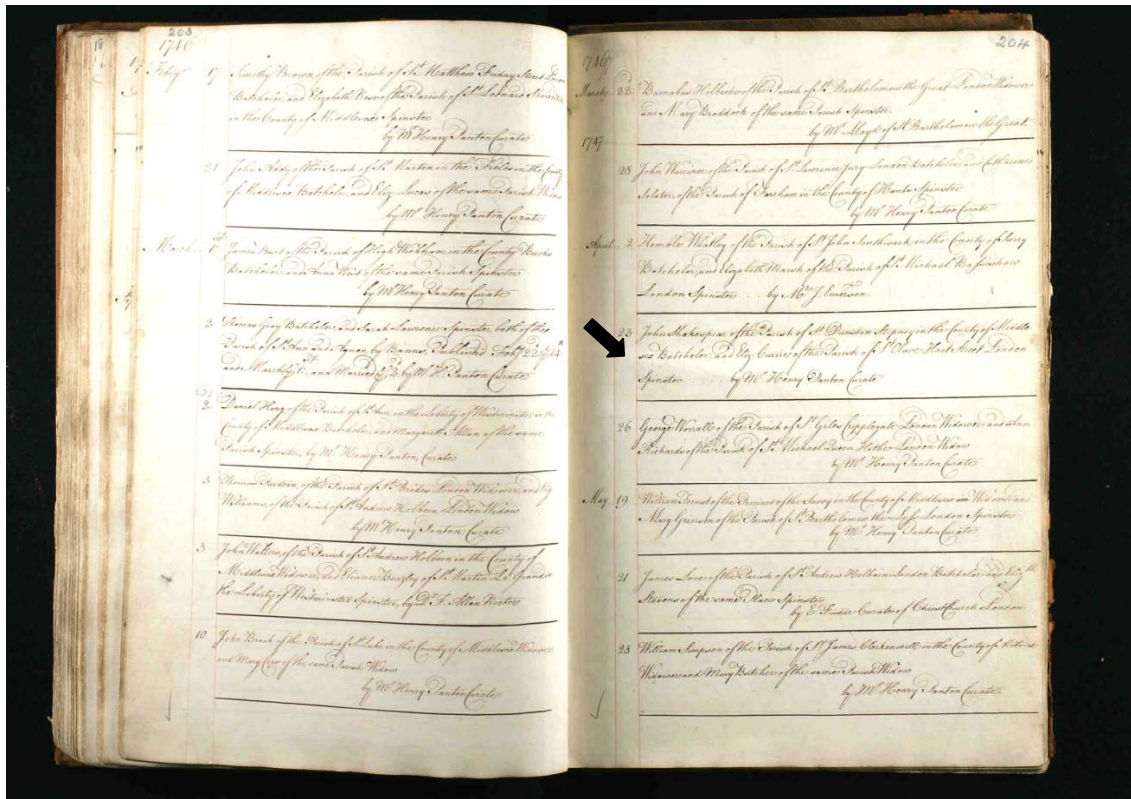 203
1746
Febry 17 Timothy Brown of the Parish of St Matthew Friday Street London
Batchelor, and Elizabeth of the Parish of St Leonard Shoreditch
in the County of Middlesex Spinster
by Mr Henry Panton Curate
21 John of the Parish of St Martin in the Fields in the County
of Middlesex Batchelor and Eliz. Lucas of the same Parish
by Mr Henry Panton Curate
March 1st James of the Parish of High in the County Bucks
Batchelor, and Anna of the same Parish Spinster
by Mr Henry Panton Curate
2 Thomas Gray Batchelor and Sarah Lawrence Spinster, both of this
Parish of St Ann and Agnes, by Banns, Published Febry 22d 24th
and March ye 1st and Married ye 2d by Mr H. Panton Curate
2 Daniel King of the Parish of St Ann in the Liberty of Westminster in the
County of Middlesex Batchelor, and Margaret Allan of the same
Parish Spinster, by Mr Henry Panton Curate
3 Thomas of the Parish of St Brides London Widower, and
Williams, of the Parish of St Andrew Holborn London Widow
by Mr Henry Panton Curate
3 John Watkins, of the Parish of St Andrew Holborn in the County of
Middlesex Widower, and Elianor Beazley of St Martin Le Grand in
the Liberty of Westminster Spinster, by Dr F. Allen Rector
10 John Brook of the Parish of St Luke in the County of Middlesex Widower
and Mary of the same Parish Widow
by Mr Henry Panton Curate
204
1746/7
March 22 Barnabas Holbeche of the Parish of St Bartholomew the Great London Widower
and Mary Braddock of the same Parish Spinster
by Mr of St Bartholomew the Great
1747
28 John Warriner of the Parish of St Lawrence Jury London Batchelor and Catharine
Slater of the Parish of Fareham in the County of Hants Spinster
by Mr Henry Panton Curate
April 2 Humble Whatley of the Parish of St John Southwark in the County of Surry
Batchelor, and Elizabeth Marsh of the Parish of St Michael Bassinshaw
London Spinster by Mr J. Emerson
23 John Shakespear of the Parish of St Dunstan Stepney in the County of Middle
sex Batchelor, and Eliz Currie of the Parish of St Olave Hart Street London
Spinster by Mr Henry Panton Curate
26 George Worrall of the Parish of St Giles Cripplegate London Widower and Ann
Richards of the Parish of St Michael Queen Hithe London Widow
by Mr Henry Panton Curate
May 19 William of the Precinct of the Savoy in the County of Middlesex Widower and
Mary Grinson of the Parish of St Bartholomew the Less London Spinster
by Mr Henry Panton Curate
21 James Love of the Parish of St Andrew Holborn London Batchelor, and Elizth
Stevens of the same Place Spinster
by E. Fisher Curate of Christ Church London
28 William Simpson of the Parish of St James Clerkenwell in the County of
Widower and Mary Butcher of the same Parish Widow
by Mr Henry Panton Curate